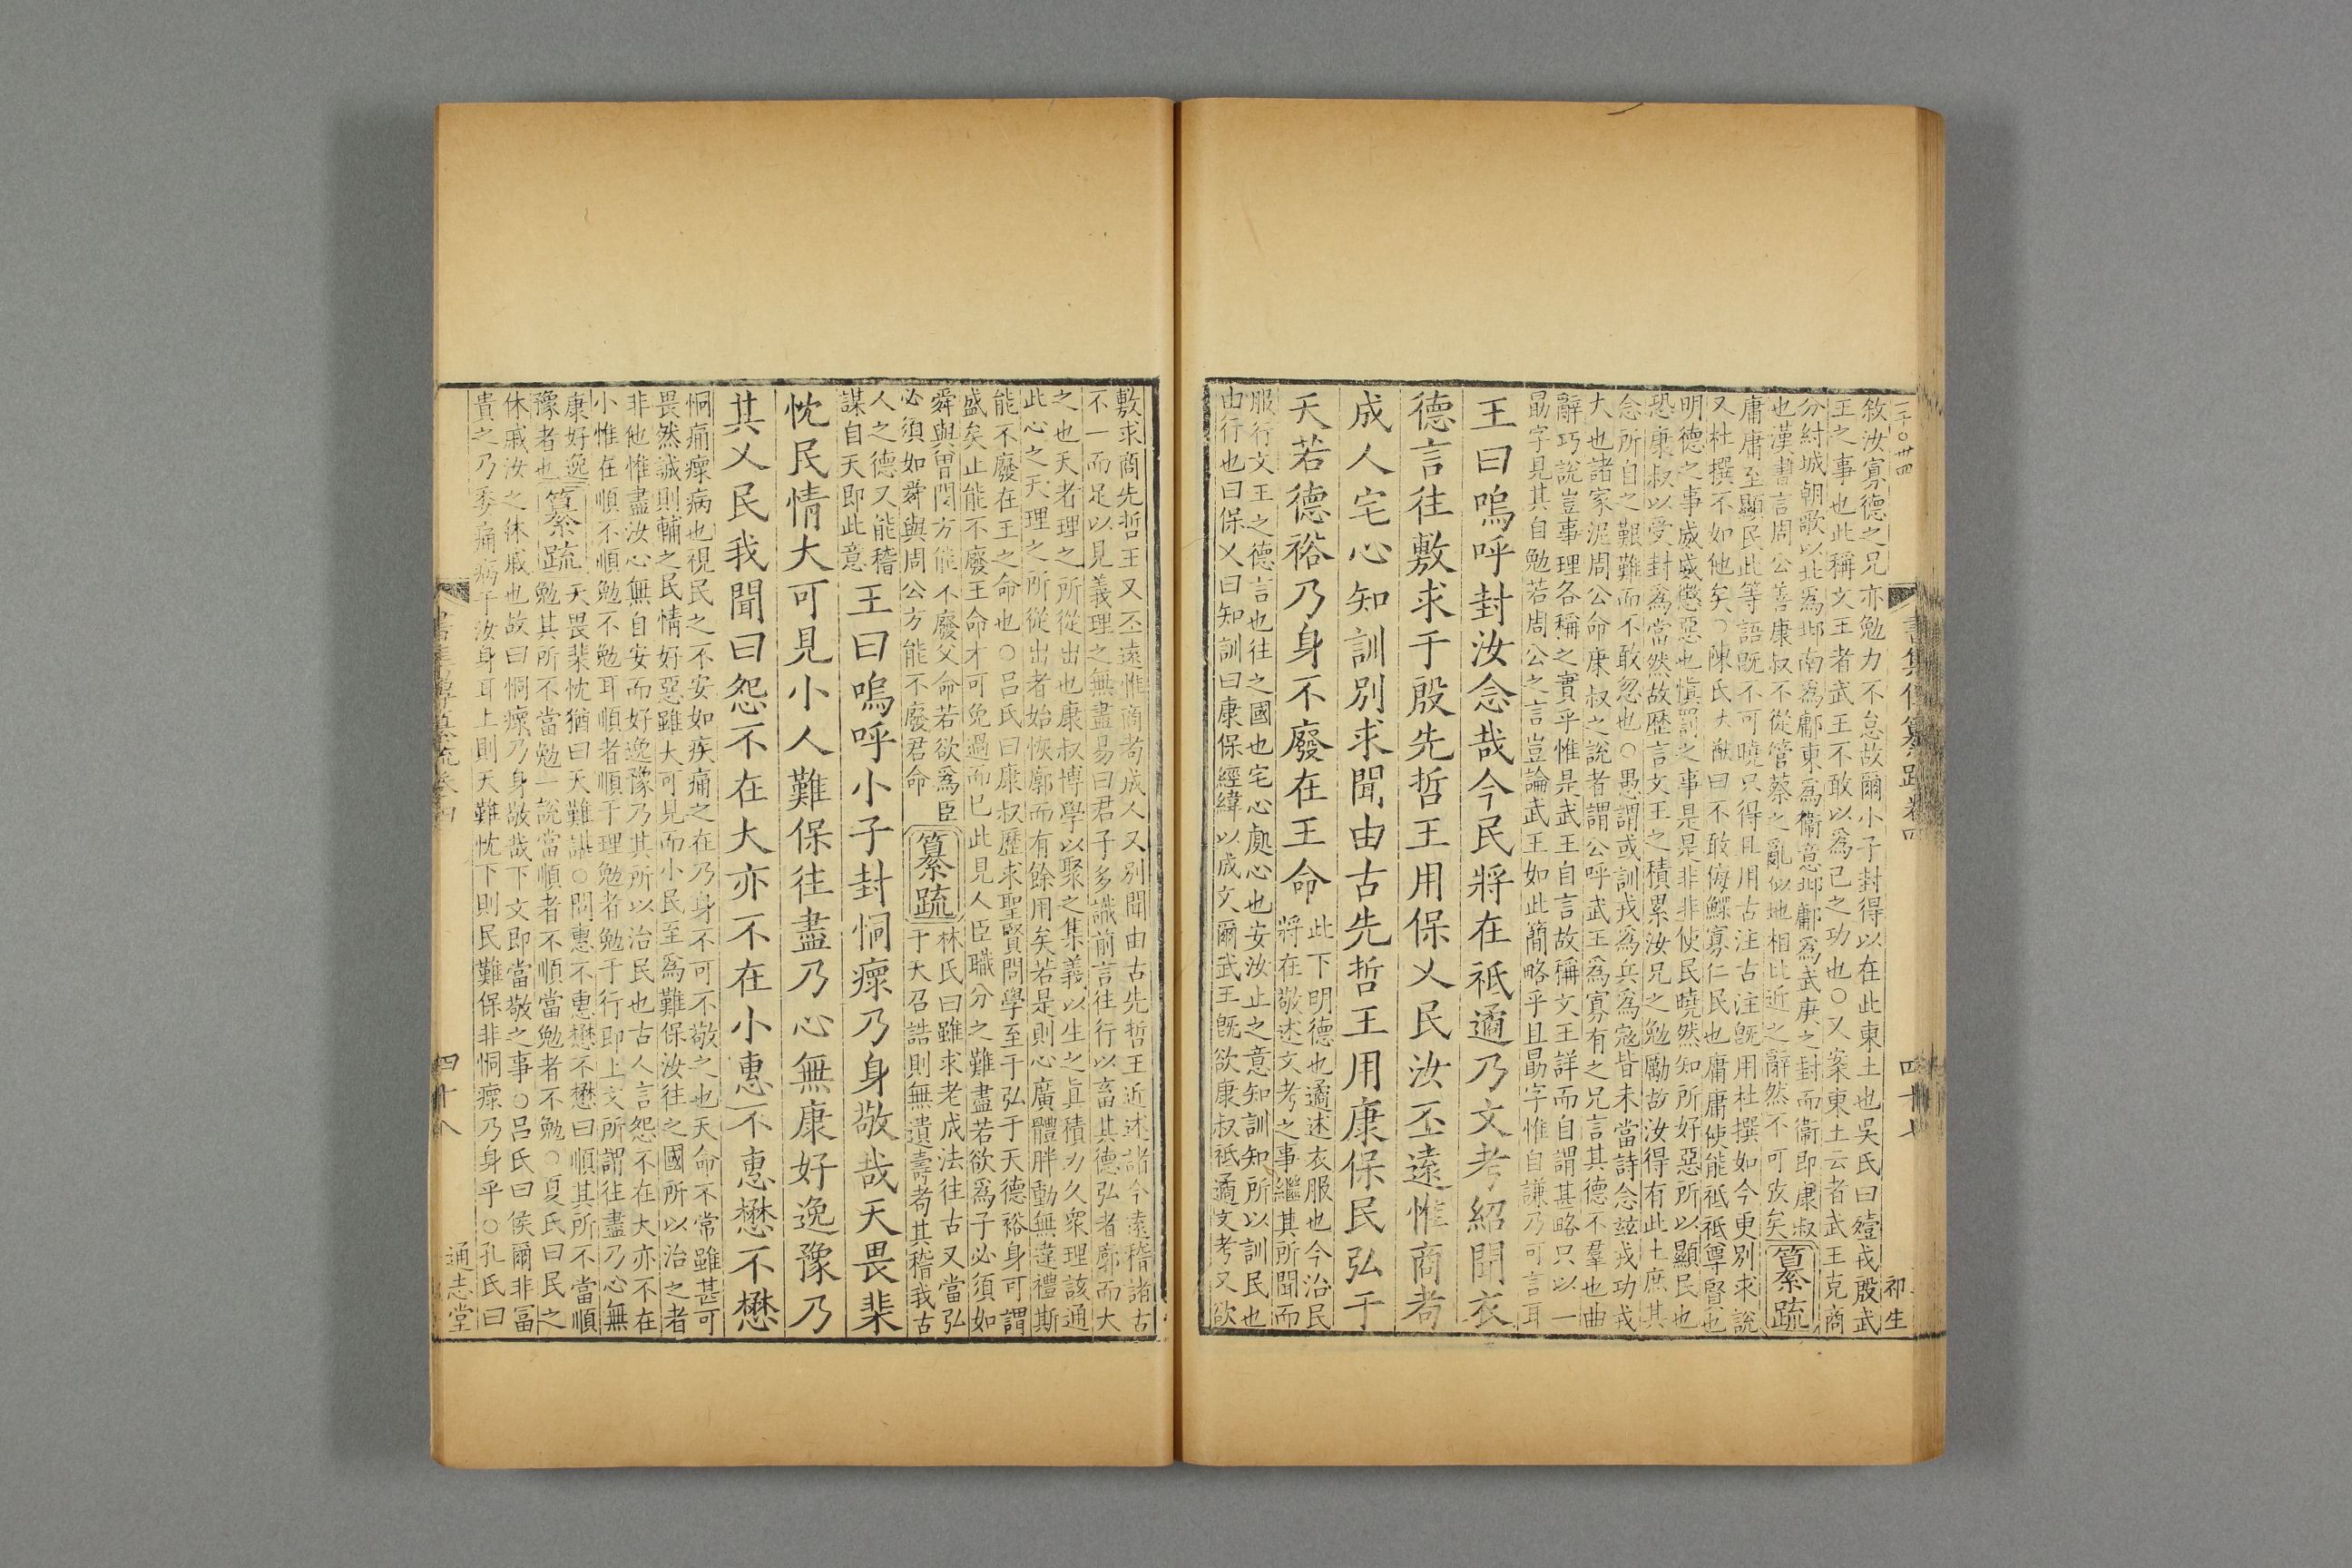 敘汝寡德之兄亦勉力不怠故爾小子封得以在此東土也吳氏曰殪戎殷武
王之事也此稱文王者武王不敢以爲己之功也○又案東土云者武王克商
分紂城朝歌以北爲邶南爲鄘東爲衞意邶鄘爲武庚之封而衞即康叔
也漢書言周公善康叔不從管蔡之亂似地相比近之辭然不可攷矣纂疏
庸庸至顯民此等語旣不可曉只得且用古注古注旣用杜撰如今更別求說
又杜撰不如他矣○陳氏大猷曰不敢侮鰥寡仁民也庸庸使能祗祗尊賢也
明德之事威威懲惡也愼罰之事是是非非使民曉然知所好惡所以顯民也
恐康叔以受封爲當然故歷言文王之積累汝兄之勉勵故汝得有此土庶其
念所自之艱難而不敢忽也○愚謂或訓戎爲兵爲寇皆未當詩念兹戎功戎
大也諸家泥周公命康叔之說者謂公呼武王爲寡有之兄言其德不羣也曲
辭巧說豈事理各稱之實乎惟是武王自言故稱文王詳而自謂甚略只以一
勗字見其自勉若周公之言豈論武王如此簡略乎且勗字惟自謙乃可言耳
王曰嗚呼封汝念哉今民將在祗遹乃文考紹聞衣
德言往敷求于殷先哲王用保乂民汝丕遠惟商耇
成人宅心知訓別求聞由古先哲王用康保民弘于
天若德裕乃身不廢在王命
此下明德也遹述衣服也今治民
將在敬述文考之事繼其所聞而
服行文王之德言也往之國也宅心處心也安汝止之意知訓知所以訓民也
由行也曰保乂曰知訓曰康保經緯以成文爾武王旣欲康叔祗遹文考又欲
書集傳纂疏卷四
四十七
初生
敷求商先哲王又丕遠惟商耇成人又別聞由古先哲王近述諸今遠稽諸古
不一而足以見義理之無盡易曰君子多識前言往行以畜其德弘者廓而大
之也天者理之所從出也康叔博學以聚之集義以生之眞積力久衆理該通
此心之天理之所從出者始恢廓而有餘用矣若是則心廣體胖動無違禮斯
能不廢在王之命也○呂氏曰康叔歷求聖賢問學至于弘于天德裕身可謂
盛矣止能不廢王命才可免過而已此見人臣職分之難盡若欲爲子必須如
舜與曾閔方能不廢父命若欲爲臣
必須如舜與周公方能不廢君命
纂疏
林氏曰雖求老成法往古又當弘
于天召誥則無遺壽耇其稽我古
人之德又能稽
謀自天即此意
王曰嗚呼小子封恫瘝乃身敬哉天畏棐
忱民情大可見小人難保往盡乃心無康好逸豫乃
其乂民我聞曰怨不在大亦不在小惠不惠懋不懋
恫痛瘝病也視民之不安如疾痛之在乃身不可不敬之也天命不常雖甚可
畏然誠則輔之民情好惡雖大可見而小民至爲難保汝往之國所以治之者
非他惟盡汝心無自安而好逸豫乃其所以治民也古人言怨不在大亦不在
小惟在順不順勉不勉耳順者順于理勉者勉于行即上文所謂往盡乃心無
康好逸
豫者也
纂疏
天畏棐忱猶曰天難諶○問惠不惠懋不懋曰順其所不當順
勉其所不當勉一說當順者不順當勉者不勉○夏氏曰民之
休戚汝之休戚也故曰恫瘝乃身敬哉下文即當敬之事○呂氏曰侯爾非富
貴之乃委痛病于汝身耳上則天難忱下則民難保非恫瘝乃身乎○孔氏曰
書集傳纂疏卷四
四十八
通志堂